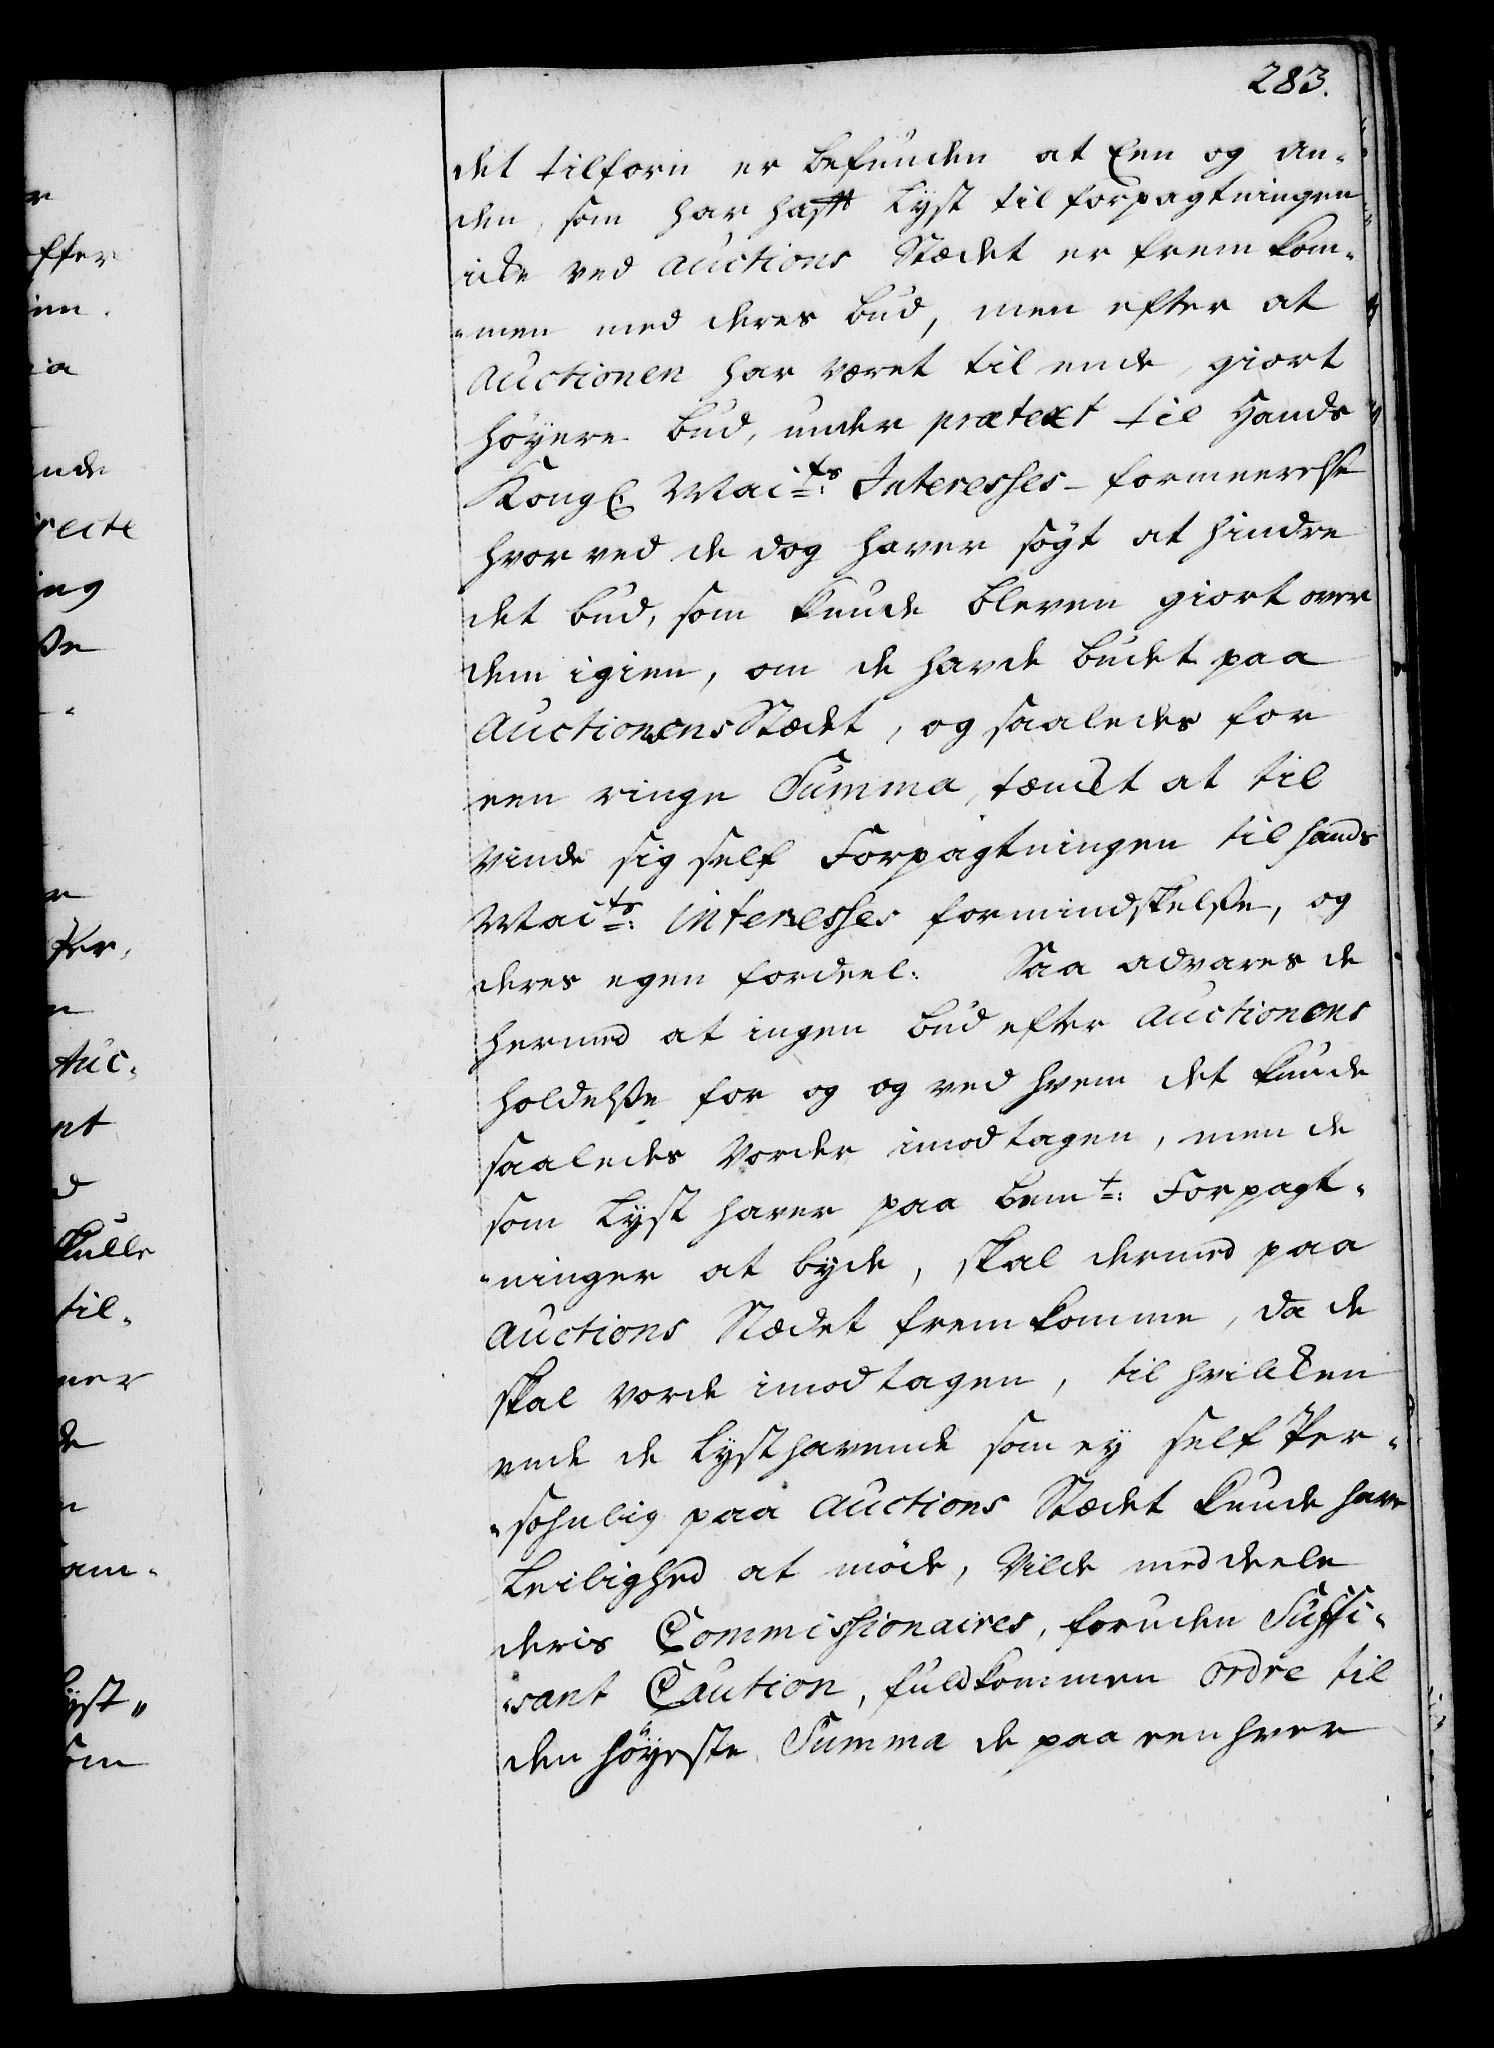 283.
det tilforn er befunden at Een og an-
den, som har hafft Lyst til forpagtningen
icke ved auctions Stædet er fremkom-
-men med deres bud, men efter at
Auctionen har været til ende, giort
høyere bud, under prætext til Hands
Kongl: Maits: Interesses-formeerelse
hvorved de dog haver søgt at hindre
det bud, som kunde bleven giort over
dem igien, om de havde budet paa
AuctionensStædet, og saaledes for
een ringe Summa, tænckt at til
vinde sig self Forpagtningen til hands
Maits: interesses formindskelse, og
deres egen fordeel. Saa advares de
hermed at ingen bud efter Auctionens
holdelse for og og ved hvem det kunde
saaledes vorder imodtagen, men de
som Lyst haver paa bemt: Forpagt-
-ninger at byde, skal dermed paa
Auctions Stædet fremkomme, da de
skal vorde imodtagen, til hvilcken
ende de Lysthavende som ey self Per-
-sohnlig paa Auctions Stædet kunde have
Leilighed at møde, Vilde meddeele
deris Commissionaires, foruden Suffi-
-sant Caution, fuldkommen ordre til
den høyeste Summa de paa een hver
effer
ia
ende
recte
ing
Auc-
skulle
til-